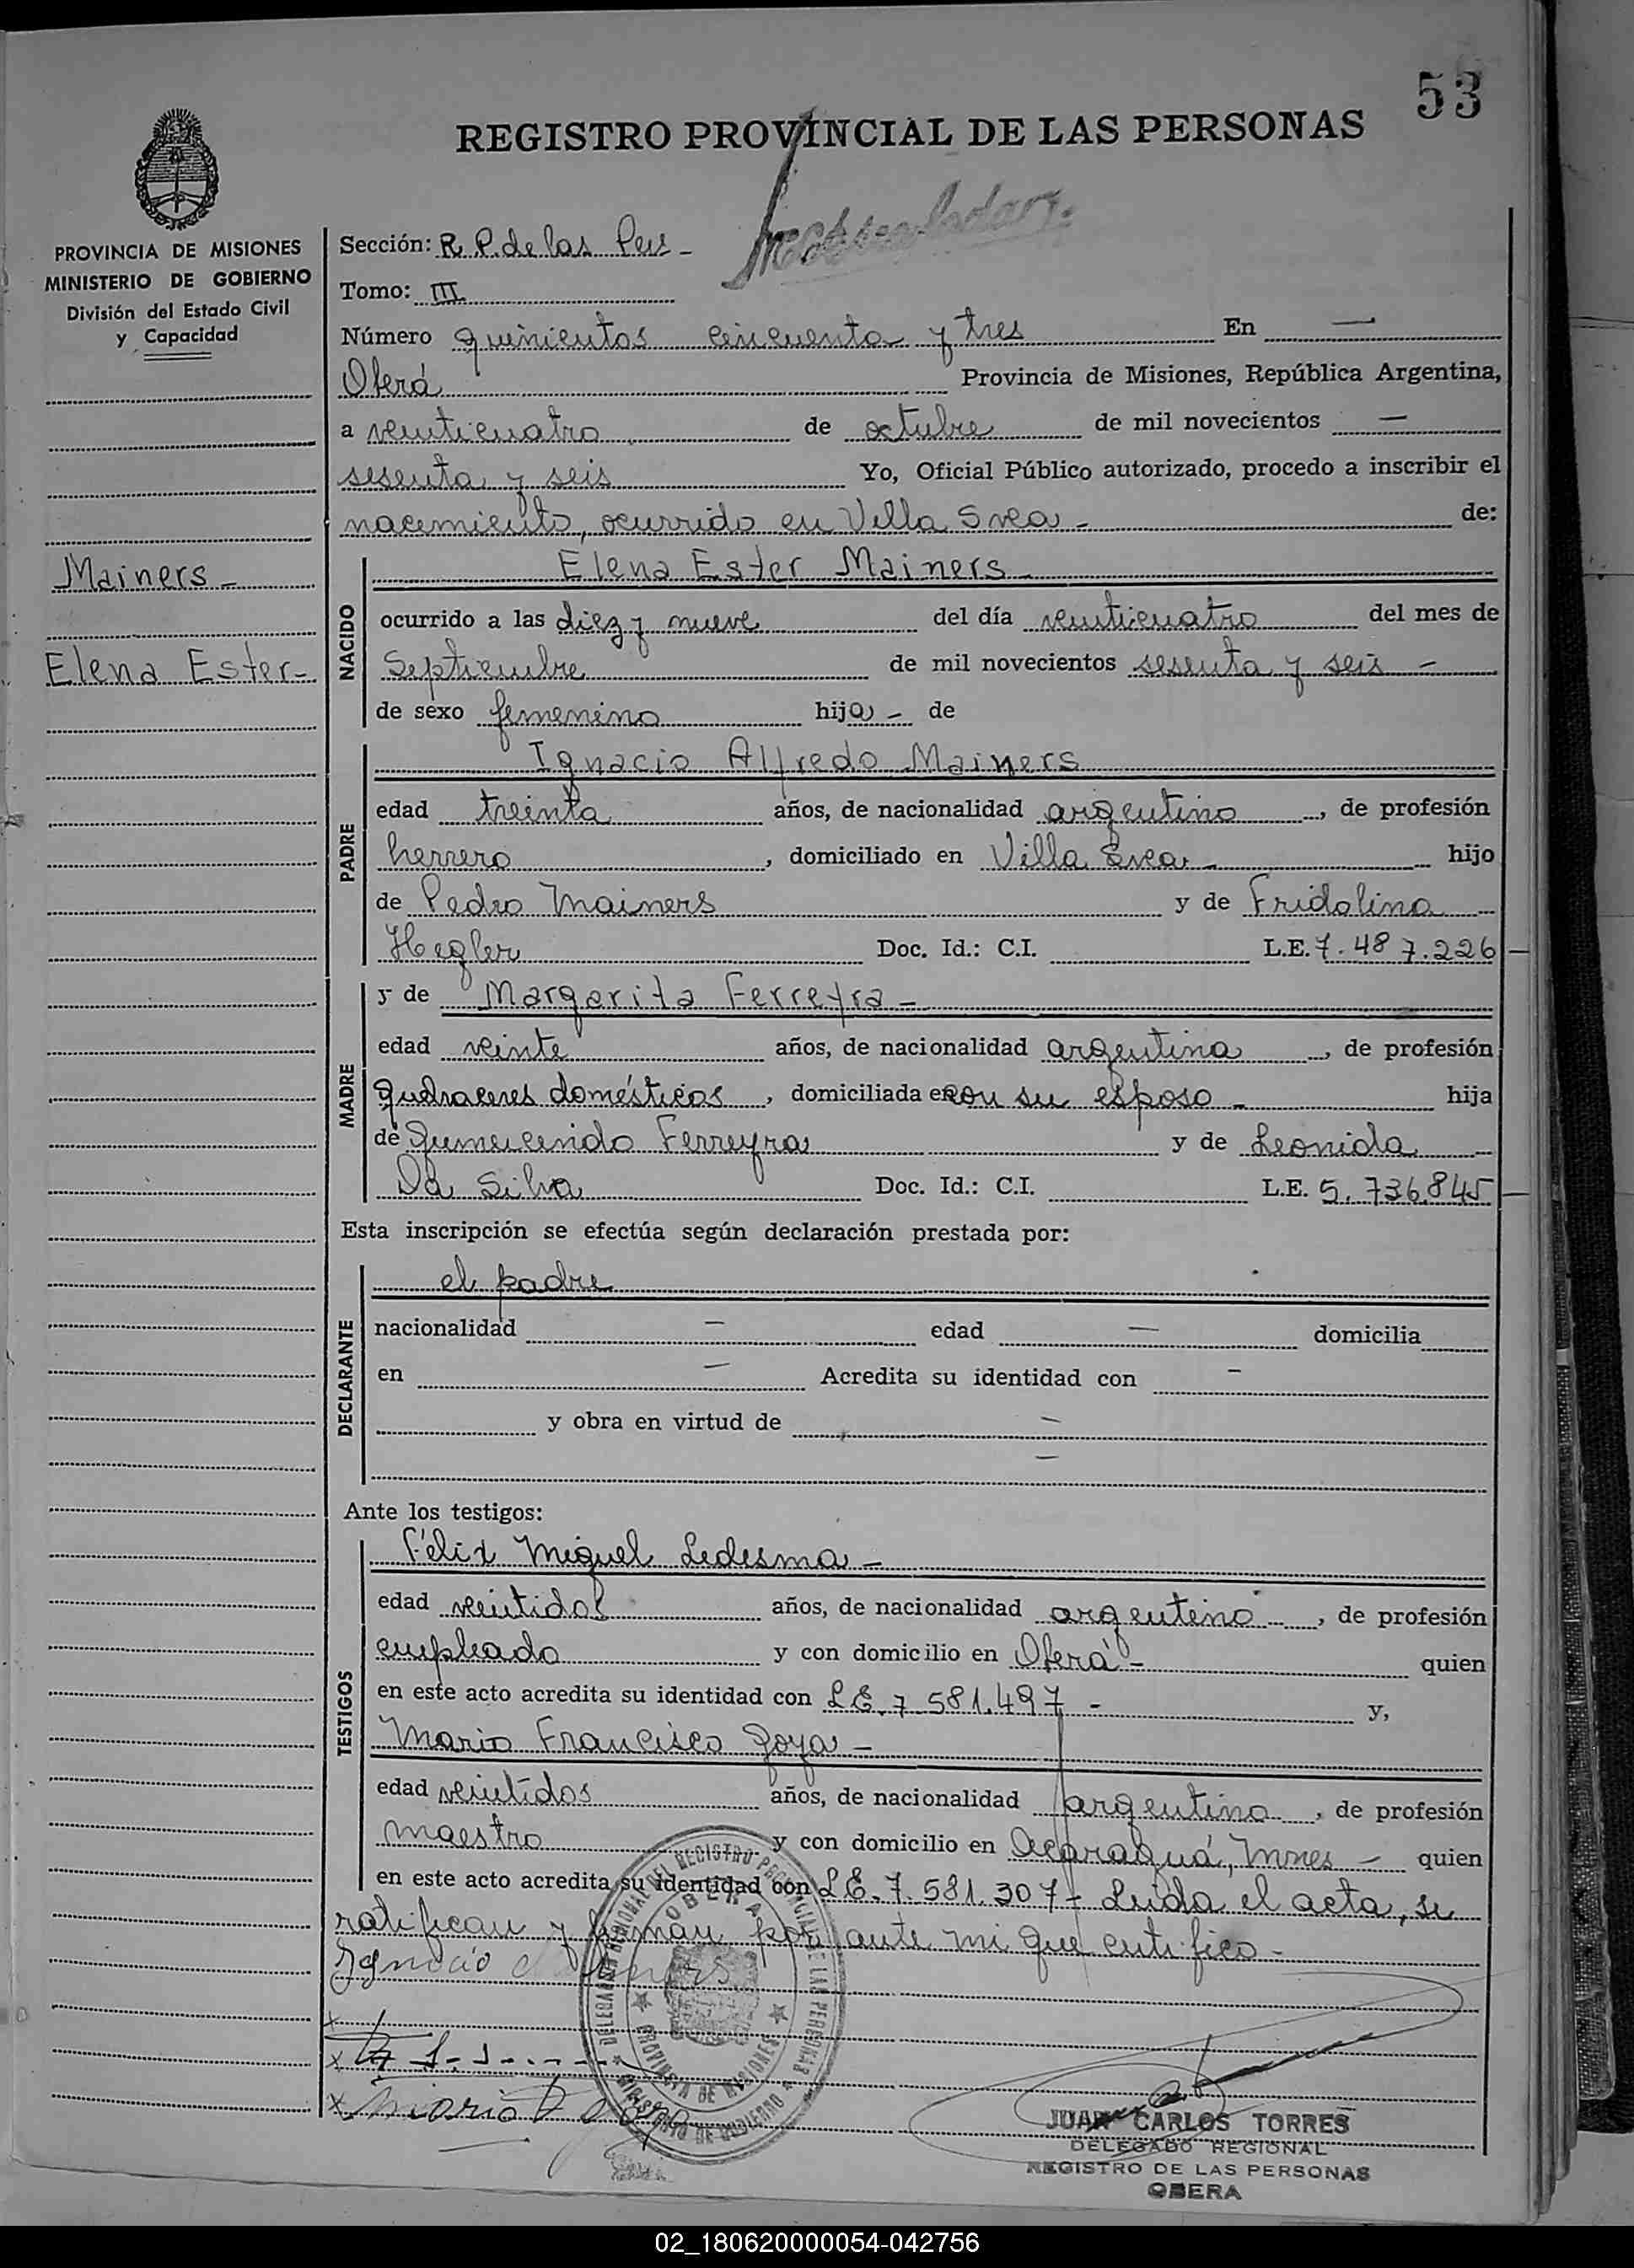 53
REGISTRO PROVINCIAL DE LAS PERSONAS
PROVINCIA DE MISIONES
MINISTERIO DE GOBIERNO
División del Estado Civil
y Capacidad
Mainers -
Elena Ester -
Sección: R. P. de las Per -
Tomo: III
Número quinientos cincuenta y tres En —
Oberá Provincia de Misiones, República Argentina,
a veinticuatro de octubre de mil novecientos —
sesenta y seis Yo, Oficial Público autorizado, procedo a inscribir el
nacimiento, ocurrido en Villa Svea - de:
NACIDO
Elena Ester Mainers -
ocurrido a las diez y nueve del día veinticuatro del mes de
Septiembre de mil novecientos sesenta y seis -
de sexo femenino hija - de
PADRE
Ignacio Alfredo Mainers
edad treinta años, de nacionalidad argentino, de profesión
herrero, domiciliado en Villa Svea - hijo
de Pedro Mainers y de Fridolina
Hegler Doc. Id.: C.I. L.E. 7.487.226 —
MADRE
y de Margarita Ferreyra -
edad veinte años, de nacionalidad argentina, de profesión
quehaceres domésticos, domiciliada en con su esposo - hija
de Gumercindo Ferreyra y de Leonida
Da Silva Doc. Id.: C.I. L.E. 5.736.845 —
Esta inscripción se efectúa según declaración prestada por:
DECLARANTE
el padre
nacionalidad — edad — domicilia
en — Acredita su identidad con —
y obra en virtud de —
—
Ante los testigos:
TESTIGOS
Félix Miguel Ledesma -
edad veintidos años, de nacionalidad argentino, de profesión
empleado y con domicilio en Oberá - quien
en este acto acredita su identidad con L.E. 7.581.497 - y,
Mario Francisco Goya -
edad veintidos años, de nacionalidad argentino, de profesión
maestro y con domicilio en Acaraguá, Mnes - quien
en este acto acredita su identidad con L.E. 7.581.307 - Leída el acta, se
ratifican y firman por ante mi que certifico -
Ignacio
x
x
x Mario
DELEGACION REGIONAL DEL REGISTRO PROVINCIAL DE LAS PERSONAS
OBERA
PROVINCIA DE MISIONES
MINISTERIO DE GOBIERNO
JUAN CARLOS TORRES
DELEGADO REGIONAL
REGISTRO DE LAS PERSONAS
OBERA
02_180620000054-042756